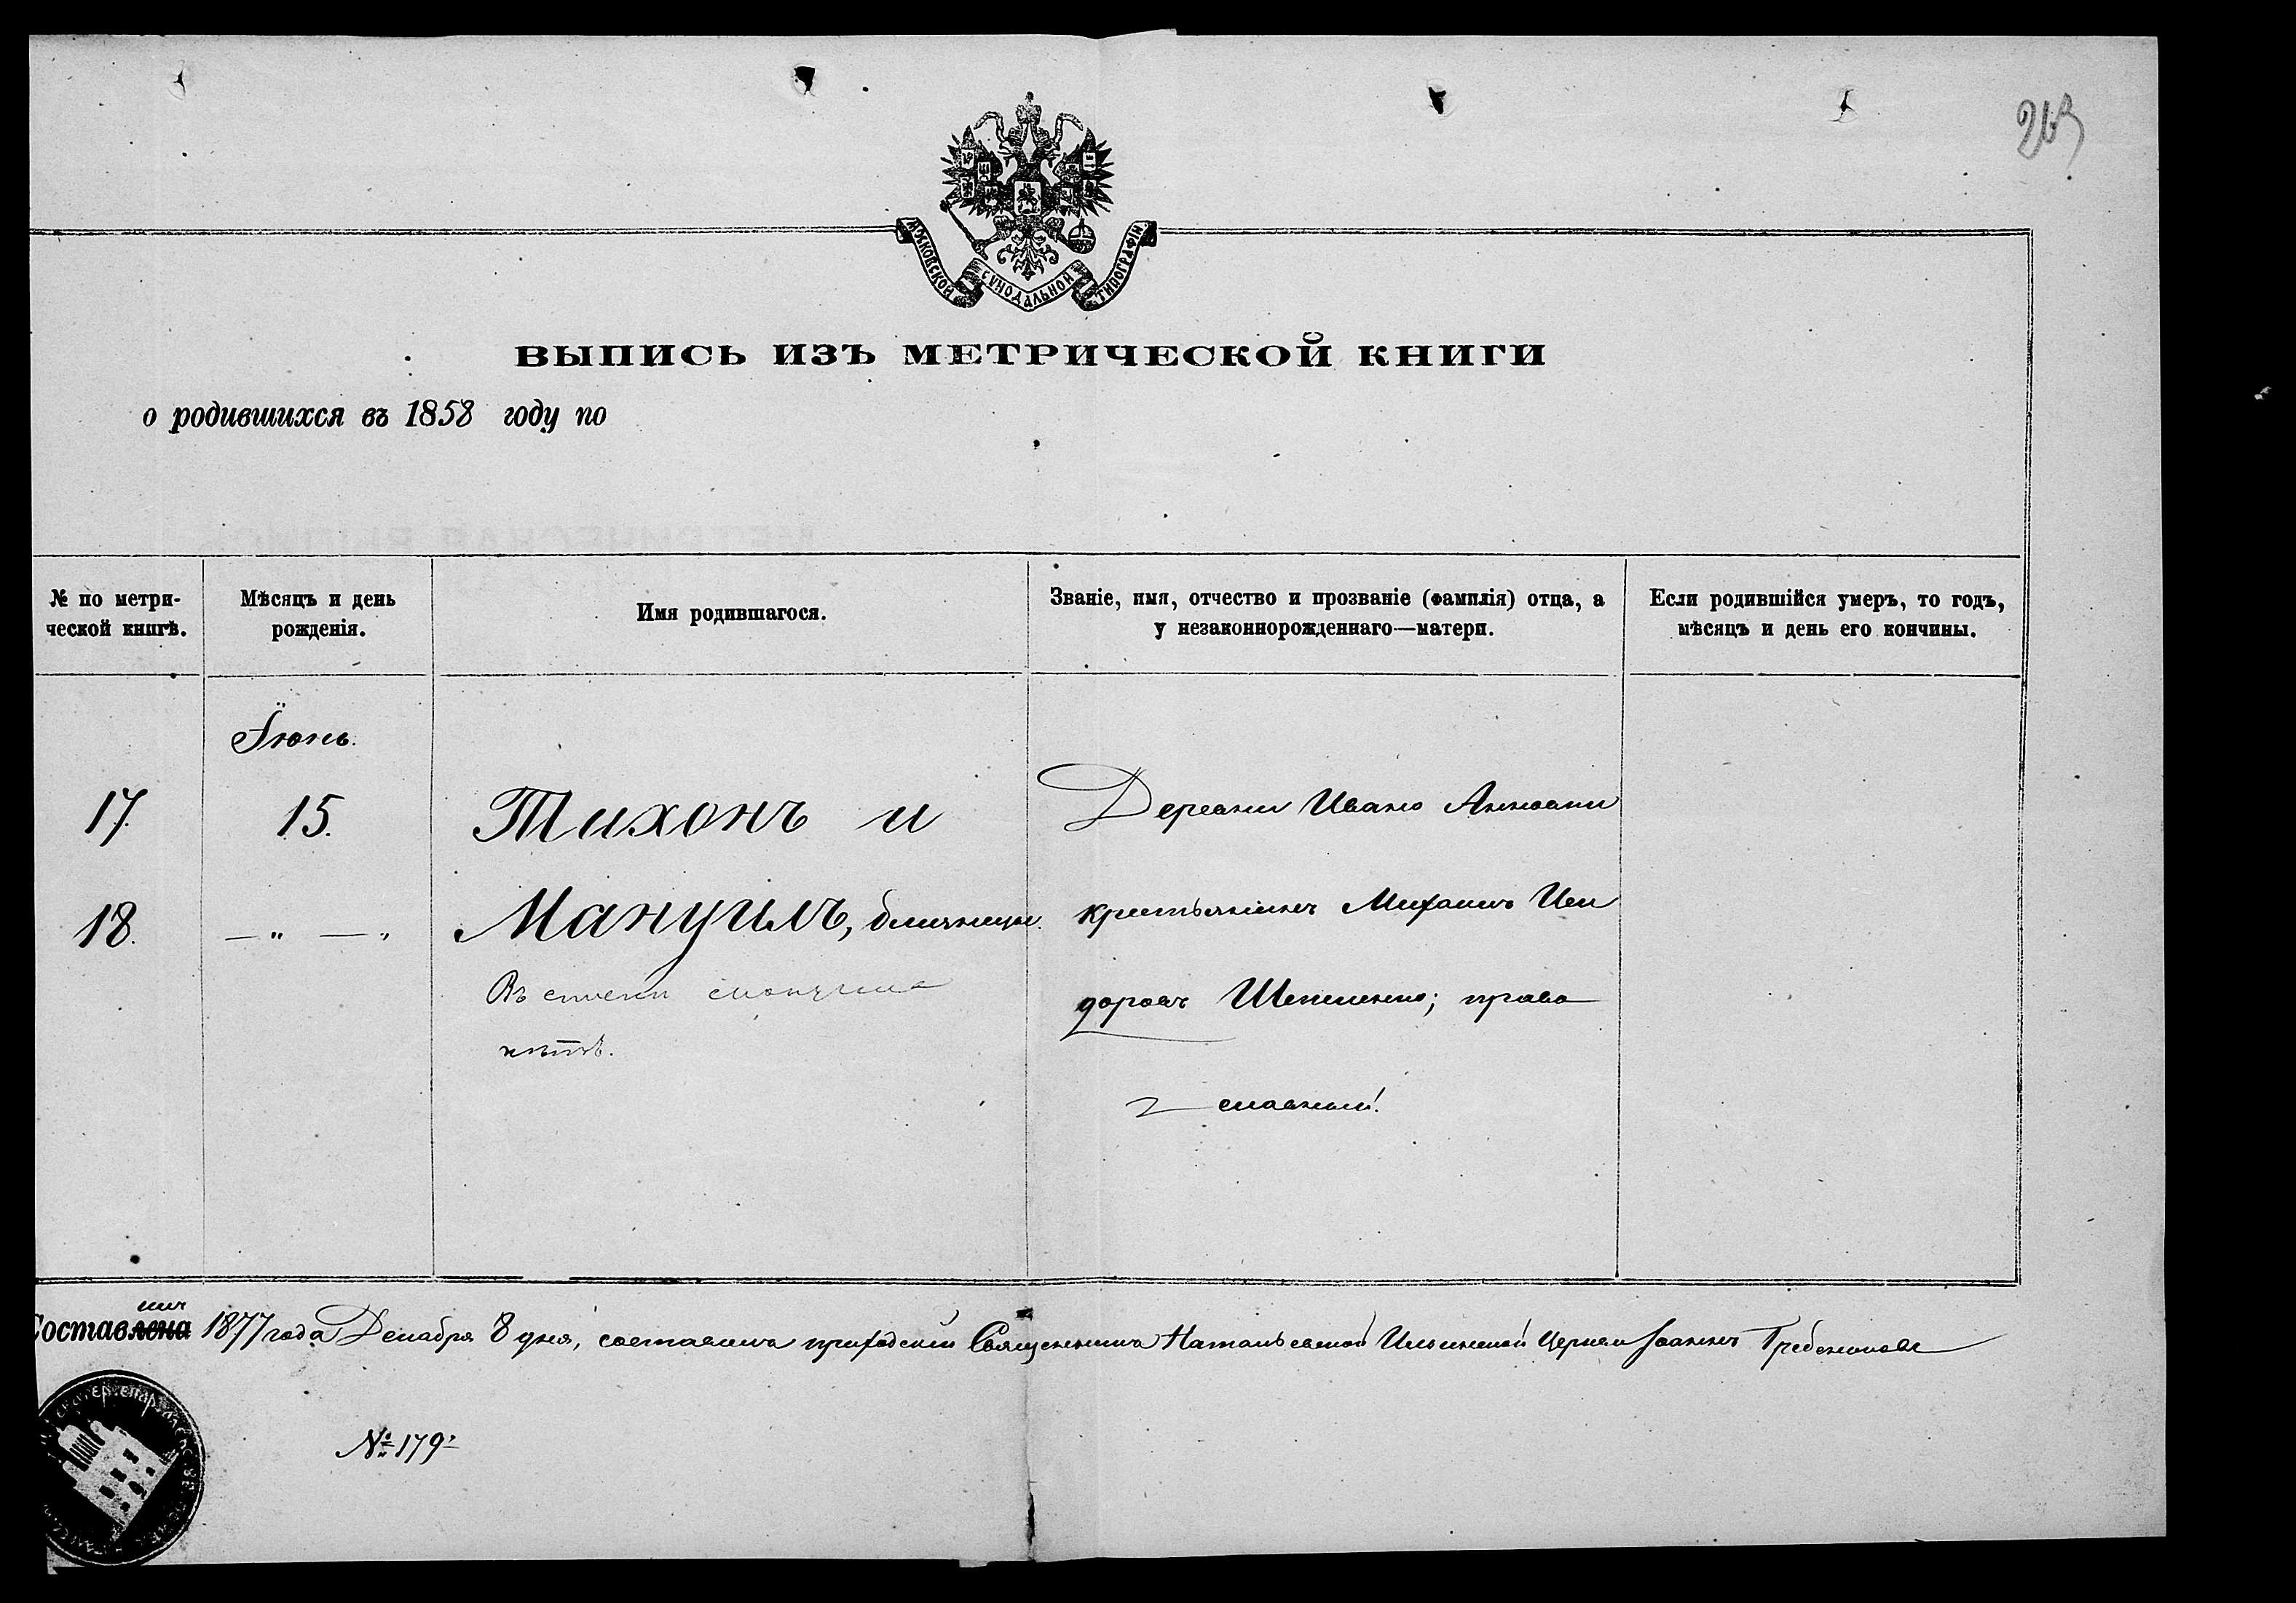 263
МОСКОВСКОЙ СѴНОДАЛЬНОЙ ТИПОГРАФІИ
ВЫПИСЬ ИЗЪ МЕТРИЧЕСКОЙ КНИГИ
о родившихся въ 1858 году по
№ по метри-
ческой книгѣ.
Мѣсяцъ и день
рожденія.
Имя родившагося.
Званіе, имя, отчество и прозваніе (фамилія) отца, а
у незаконнорожденнаго—матери.
Если родившійся умеръ, то годъ,
мѣсяцъ и день его кончины.
Іюнь.
17. 15. Тихонъ и Деревни Ивано
18. — " — " Мануилъ, близнецы. крестьянинъ Михаилъ Иси
Въ
нѣтъ.
доровъ права
славный.
Составленъ 1877 года Декабря 8 дня, приходскій Священникъ Ильинской Церкви Іоаннъ
№ 179.